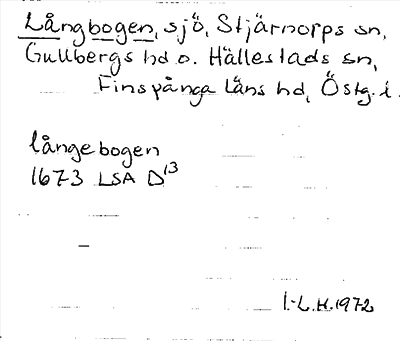 Långbogen, sjö, Stjärnorps sn,
Gullbergs hd o. Hällestads sn,
Finspånga läns hd, Östg. l.
långebogen
1673 LSA D13
I.-L.H. 1972